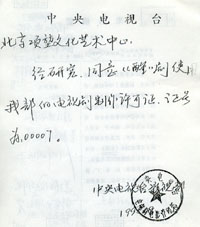 中央电视台
北京项堃文化艺术中心:
经研究,同意《醉》剧使
我部的电视剧制作许可证、证号
为00007。
中央电视台
199